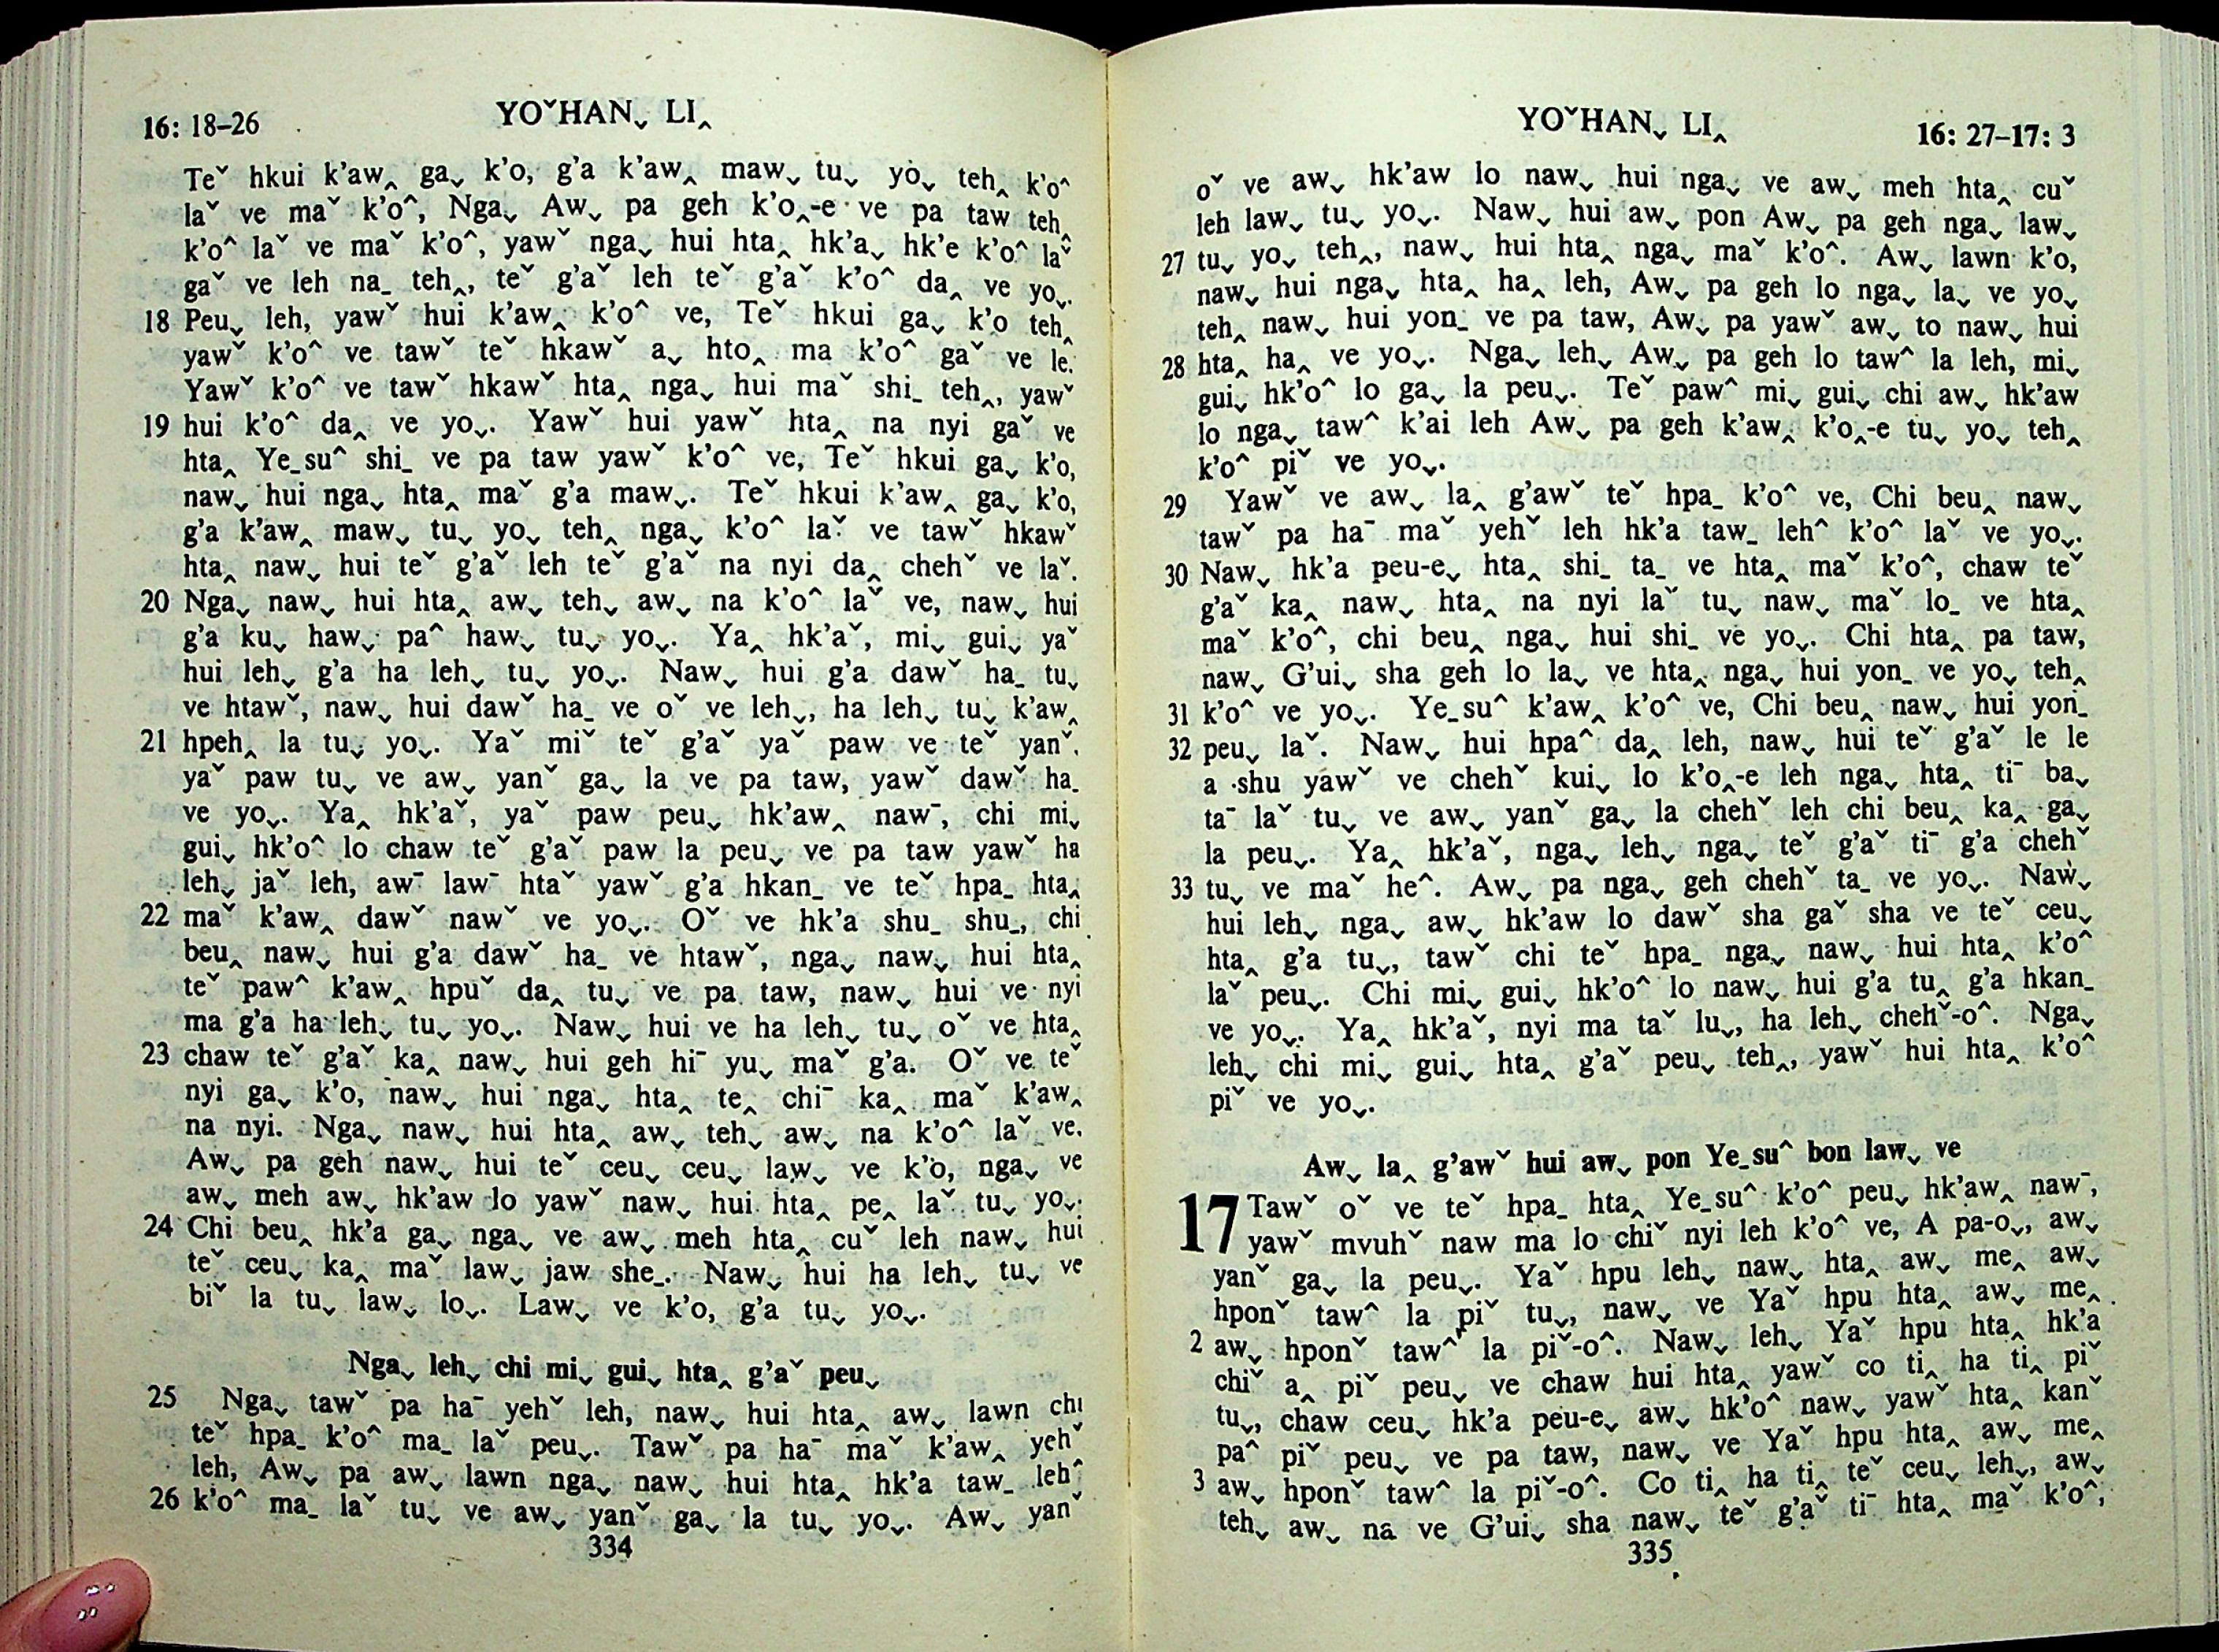 16: 18–26
YOˇHANˬ LI‸
Teˇ hkui k’aw‸ gaˬ k’o, g’a k’aw‸ mawˬ tuˬ yoˬ teh‸ k’o^
laˇ ve maˇ k’o^, Ngaˬ Awˬ pa geh k’o‸-e ve pa taw teh‸
k’o^ laˇ ve maˇ k’o^, yawˇ ngaˬ hui hta‸ hk’aˬ hk’e k’o^ laˇ
gaˇ ve leh na_ teh‸, teˇ g’aˇ leh teˇ g’aˇ k’o^ da‸ ve yoˬ.
18 Peuˬ leh, yawˇ hui k’aw‸ k’o^ ve, Teˇ hkui gaˬ k’o teh‸
yawˇ k’o^ ve tawˇ teˇ hkawˇ aˬ hto‸ ma k’o^ gaˇ ve le.
Yawˇ k’o^ ve tawˇ hkawˇ hta‸ ngaˬ hui maˇ shi_ teh‸, yawˇ
19 hui k’o^ da‸ ve yoˬ. Yawˇ hui yawˇ hta‸ na nyi gaˇ ve
hta‸ Ye_su^ shi_ ve pa taw yawˇ k’o^ ve, Teˇ hkui gaˬ k’o,
nawˬ hui ngaˬ hta‸ maˇ g’a mawˬ. Teˇ hkui k’aw‸ gaˬ k’o,
g’a k’aw‸ mawˬ tuˬ yoˬ teh‸ ngaˬ k’o^ laˇ ve tawˇ hkawˇ
hta‸ nawˬ hui teˇ g’aˇ leh teˇ g’aˇ na nyi da‸ chehˇ ve laˇ.
20 Ngaˬ nawˬ hui hta‸ awˬ tehˬ awˬ na k’o^ laˇ ve, nawˬ hui
g’a kuˬ hawˬ pa^ hawˬ tuˬ yoˬ. Ya‸ hk’aˇ, miˬ guiˬ yaˇ
hui lehˬ g’a ha lehˬ tuˬ yoˬ. Nawˬ hui g’a dawˇ ha_ tuˬ
ve htawˇ, nawˬ hui dawˇ ha_ ve oˇ ve lehˬ, ha lehˬ tuˬ k’aw‸
21 hpeh‸ la tuˬ yoˬ. Yaˇ miˇ teˇ g’aˇ yaˇ paw ve teˇ yanˇ.
yaˇ paw tuˬ ve awˬ yanˇ gaˬ la ve pa taw, yawˇ dawˇ ha_
ve yoˬ. Ya‸ hk’aˇ, yaˇ paw peuˬ hk’aw‸ naw¯, chi miˬ
guiˬ hk’o^ lo chaw teˇ g’aˇ paw la peuˬ ve pa taw yawˇ ha
lehˬ jaˇ leh, aw¯ law¯ htaˇ yawˇ g’a hkan_ ve teˇ hpa_ hta‸
22 maˇ k’aw‸ dawˇ nawˇ ve yoˬ. Oˇ ve hk’a shu_ shu_, chi
beu‸ nawˬ hui g’a dawˇ ha_ ve htawˇ, ngaˬ nawˬ hui hta‸
teˇ paw^ k’aw‸ hpuˇ da‸ tuˬ ve pa taw, nawˬ hui ve nyi
ma g’a ha lehˬ tuˬ yoˬ. Nawˬ hui ve ha lehˬ tuˬ oˇ ve hta‸
23 chaw teˇ g’aˇ ka‸ nawˬ hui geh hi¯ yuˬ maˇ g’a. Oˇ ve teˇ
nyi gaˬ k’o, nawˬ hui ngaˬ hta‸ te‸ chi¯ ka‸ maˇ k’aw‸
na nyi. Ngaˬ nawˬ hui hta‸ awˬ tehˬ awˬ na k’o^ laˇ ve.
Awˬ pa geh nawˬ hui teˇ ceuˬ ceuˬ lawˬ ve k’o, ngaˬ ve
awˬ meh awˬ hk’aw lo yawˇ nawˬ hui hta‸ pe‸ laˇ tuˬ yoˬ.
24 Chi beu‸ hk’a gaˬ ngaˬ ve awˬ meh hta‸ cuˇ leh nawˬ hui
teˇ ceuˬ ka‸ maˇ lawˬ jaw she_. Nawˬ hui ha lehˬ tuˬ ve
biˇ la tuˬ lawˬ loˬ. Lawˬ ve k’o, g’a tuˬ yoˬ.
Ngaˬ lehˬ chi miˬ guiˬ hta‸ g’aˇ peuˬ
25 Ngaˬ tawˇ pa ha¯ yehˇ leh, nawˬ hui hta‸ awˬ lawn chi
teˇ hpa_ k’o^ ma_ laˇ peuˬ. Tawˇ pa ha¯ maˇ k’aw‸ yehˇ
leh, Awˬ pa awˬ lawn ngaˬ nawˬ hui hta‸ hk’a taw_ leh^
26 k’o^ ma_ laˇ tuˬ ve awˬ yanˇ gaˬ la tuˬ yoˬ. Awˬ yanˇ
334
YOˇHANˬ LI‸
16: 27–17: 3
oˇ ve awˬ hk’aw lo nawˬ hui ngaˬ ve awˬ meh hta‸ cuˇ
leh lawˬ tuˬ yoˬ. Nawˬ hui awˬ pon Awˬ pa geh ngaˬ lawˬ
27 tuˬ yoˬ teh‸, nawˬ hui hta‸ ngaˬ maˇ k’o^. Awˬ lawn k’o,
nawˬ hui ngaˬ hta‸ ha‸ leh, Awˬ pa geh lo ngaˬ laˬ ve yoˬ
teh‸ nawˬ hui yon_ ve pa taw, Awˬ pa yawˇ awˬ to nawˬ hui
28 hta‸ ha‸ ve yoˬ. Ngaˬ lehˬ Awˬ pa geh lo taw^ la leh, miˬ
guiˬ hk’o^ lo gaˬ la peuˬ. Teˇ paw^ miˬ guiˬ chi awˬ hk’aw
lo ngaˬ taw^ k’ai leh Awˬ pa geh k’aw‸ k’o‸-e tuˬ yoˬ teh‸
k’o^ piˇ ve yoˬ.
29 Yawˇ ve awˬ la‸ g’awˇ teˇ hpa_ k’o^ ve, Chi beu‸ nawˬ
tawˇ pa ha¯ maˇ yehˇ leh hk’a taw_ leh^ k’o^ laˇ ve yoˬ.
30 Nawˬ hk’a peu-eˬ hta‸ shi_ ta_ ve hta‸ maˇ k’o^, chaw teˇ
g’aˇ ka‸ nawˬ hta‸ na nyi laˇ tuˬ nawˬ maˇ lo_ ve hta‸
maˇ k’o^, chi beu‸ ngaˬ hui shi_ ve yoˬ. Chi hta‸ pa taw,
nawˬ G’uiˬ sha geh lo laˬ ve hta‸ ngaˬ hui yon_ ve yoˬ teh‸
31 k’o^ ve yoˬ. Ye_su^ k’aw‸ k’o^ ve, Chi beu‸ nawˬ hui yon_
32 peuˬ laˇ. Nawˬ hui hpa^ da‸ leh, nawˬ hui teˇ g’aˇ le le
a shu yawˇ ve chehˇ kuiˬ lo k’o‸-e leh ngaˬ hta‸ ti¯ baˬ
ta¯ laˇ tuˬ ve awˬ yanˇ gaˬ la chehˇ leh chi beu‸ ka‸ gaˬ
la peuˬ. Ya‸ hk’aˇ, ngaˬ lehˬ ngaˬ teˇ g’aˇ ti¯ g’a chehˇ
33 tuˬ ve maˇ he^. Awˬ pa ngaˬ geh chehˇ ta_ ve yoˬ. Nawˬ
hui lehˬ ngaˬ awˬ hk’aw lo dawˇ sha gaˇ sha ve teˇ ceuˬ
hta‸ g’a tuˬ, tawˇ chi teˇ hpa_ ngaˬ nawˬ hui hta‸ k’o^
laˇ peuˬ. Chi miˬ guiˬ hk’o^ lo nawˬ hui g’a tu‸ g’a hkan_
ve yoˬ. Ya‸ hk’aˇ, nyi ma taˇ luˬ, ha lehˬ chehˇ-o^. Ngaˬ
lehˬ chi miˬ guiˬ hta‸ g’aˇ peuˬ teh‸, yawˇ hui hta‸ k’o^
piˇ ve yoˬ.
Awˬ la‸ g’awˇ hui awˬ pon Ye_su^ bon lawˬ ve
17 Tawˇ oˇ ve teˇ hpa_ hta‸ Ye_su^ k’o^ peuˬ hk’aw‸ naw¯,
yawˇ mvuhˇ naw ma lo chiˇ nyi leh k’o^ ve, A pa-oˬ, awˬ
yanˇ gaˬ la peuˬ. Yaˇ hpu lehˬ nawˬ hta‸ awˬ me‸ awˬ
hponˇ taw^ la piˇ tuˬ, nawˬ ve Yaˇ hpu hta‸ awˬ me‸
2 awˬ hponˇ taw^ la piˇ-o^. Nawˬ lehˬ Yaˇ hpu hta‸ hk’a
chiˇ a‸ piˇ peuˬ ve chaw hui hta‸ yawˇ co ti‸ ha ti‸ piˇ
tuˬ, chaw ceuˬ hk’a peu-eˬ awˬ hk’o^ nawˬ yawˇ hta‸ kanˇ
pa^ piˇ peuˬ ve pa taw, nawˬ ve Yaˇ hpu hta‸ awˬ me‸
3 awˬ hponˇ taw^ la piˇ-o^. Co ti‸ ha ti‸ teˇ ceuˬ lehˬ, awˬ
tehˬ awˬ na ve G’uiˬ sha nawˬ teˇ g’aˇ ti¯ hta‸ maˇ k’o^,
335